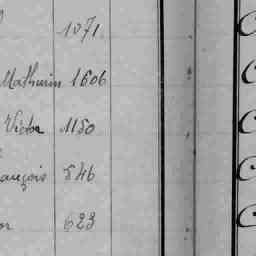 1071
Mathurin 1606
Victor 1150
ançois 546
or 623